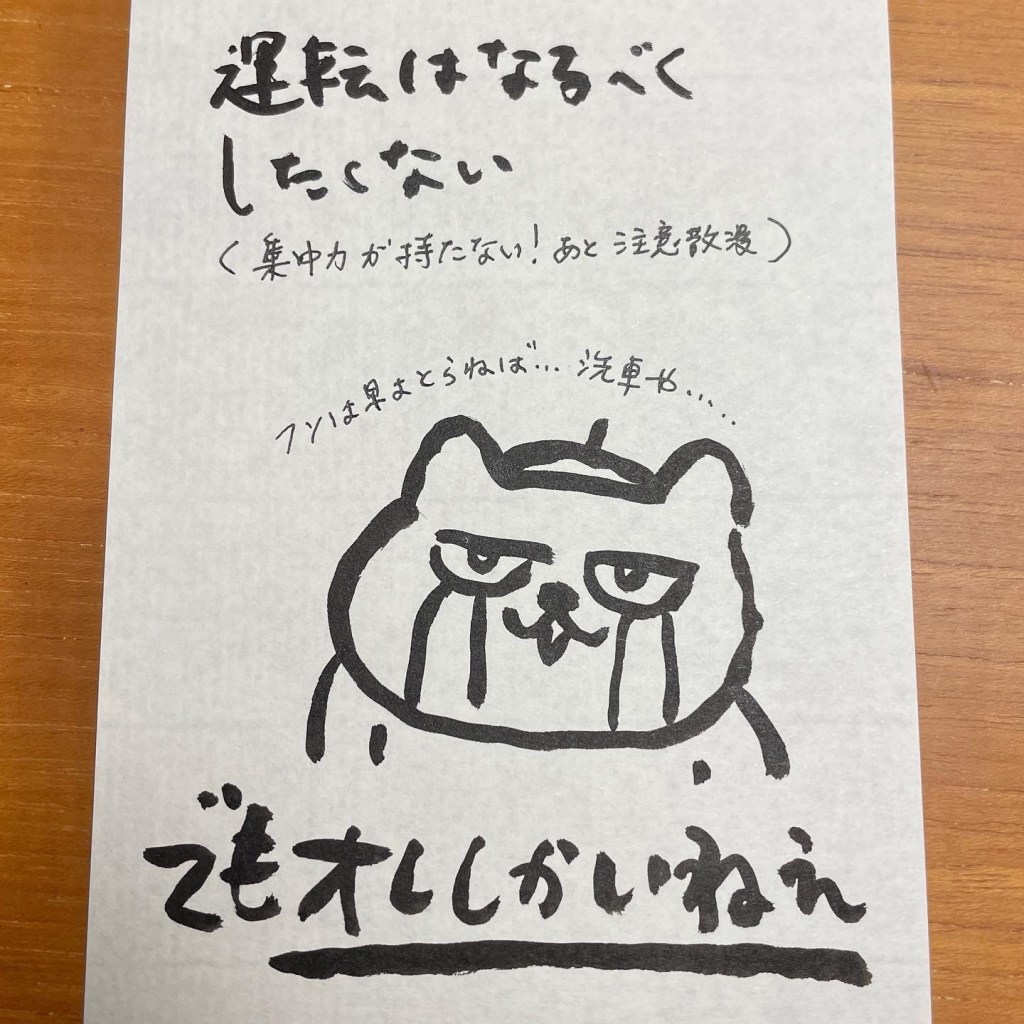 運転はなるべく
したくない
(集中力が持たない!あと注意散漫)
フンは早よとらねば…洗車や……
でもオレしかいねえ